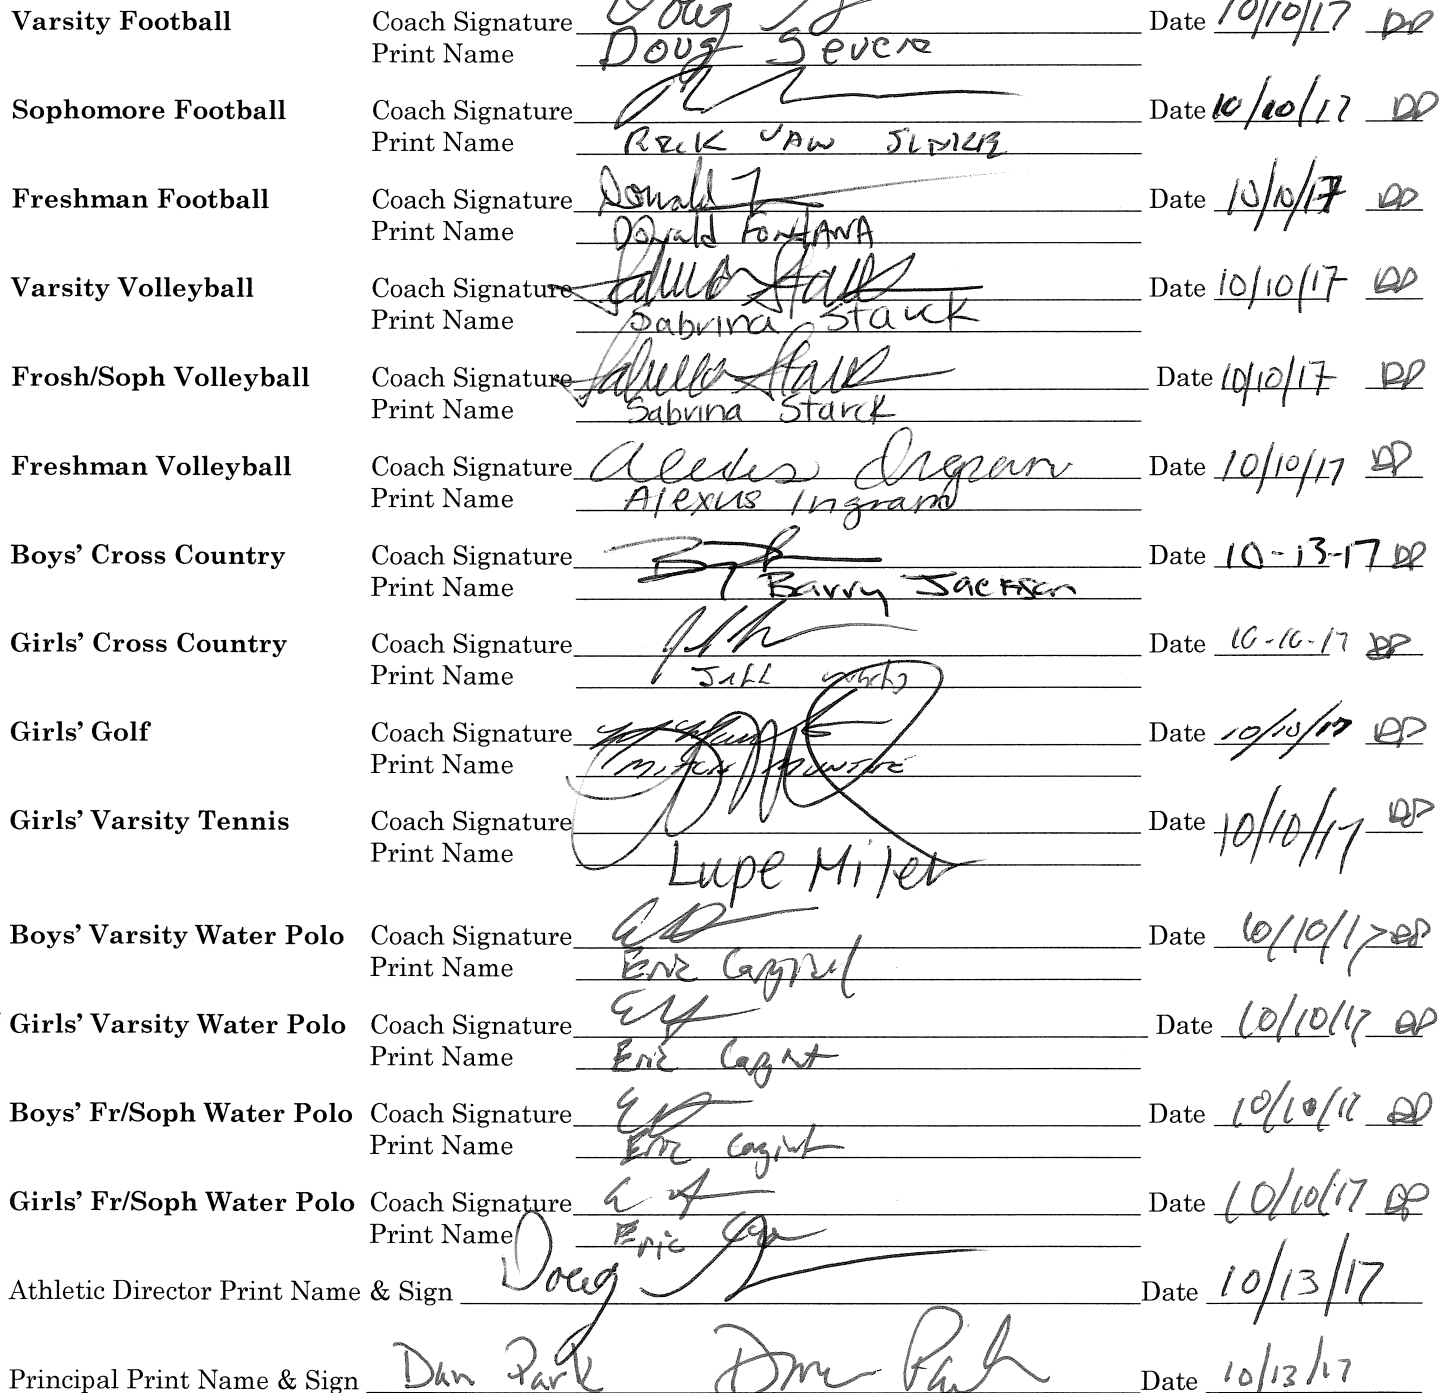 Varsity Football Coach Signature Doug Date 10/10/17 DP
Print Name Doug Severe
Sophomore Football Coach Signature Date 10/10/17 DP
Print Name
Freshman Football Coach Signature Donald Date 10/10/17 DP
Print Name Donald Fontana
Varsity Volleyball Coach Signature Sabrina Starck Date 10/10/17 DP
Print Name Sabrina Starck
Frosh/Soph Volleyball Coach Signature Sabrina Starck Date 10/10/17 DP
Print Name Sabrina Starck
Freshman Volleyball Coach Signature Alexus Ingram Date 10/10/17 DP
Print Name Alexus Ingram
Boys' Cross Country Coach Signature Date 10-13-17 DP
Print Name Barry Jackson
Girls' Cross Country Coach Signature Date DP
Print Name
Girls' Golf Coach Signature Date 10/10/17 DP
Print Name
Girls' Varsity Tennis Coach Signature Date 10/10/17 DP
Print Name Lupe Miler
Boys' Varsity Water Polo Coach Signature Date 10/10/17 DP
Print Name Eric
Girls' Varsity Water Polo Coach Signature Date 10/10/17 DP
Print Name Eric
Boys' Fr/Soph Water Polo Coach Signature Date 10/10/17 DP
Print Name Eric
Girls' Fr/Soph Water Polo Coach Signature Date 10/10/17 DP
Print Name Eric
Athletic Director Print Name & Sign Doug Date 10/13/17
Principal Print Name & Sign Dan Park Dan Park Date 10/13/17